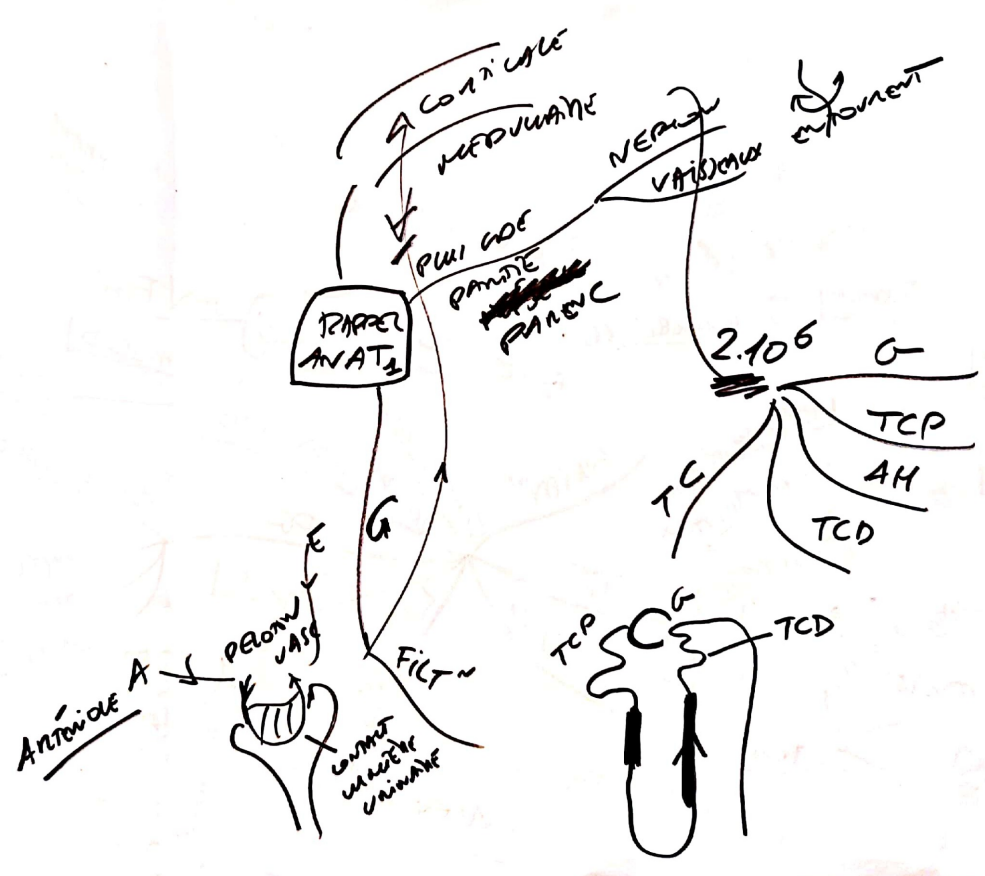 CORTICALE
MEDULLAIRE
NEPHRON
VAISSEAUX
ENTOURENT
PARTIE
PARENC
RAPPEL
ANAT 1
2.10⁶
G
TCP
AH
TCD
TC
G
E
PELOTON
VASC
FILT~
A
ARTÉRIOLE
CONTACT
URINAIRE
G
TCP
TCD